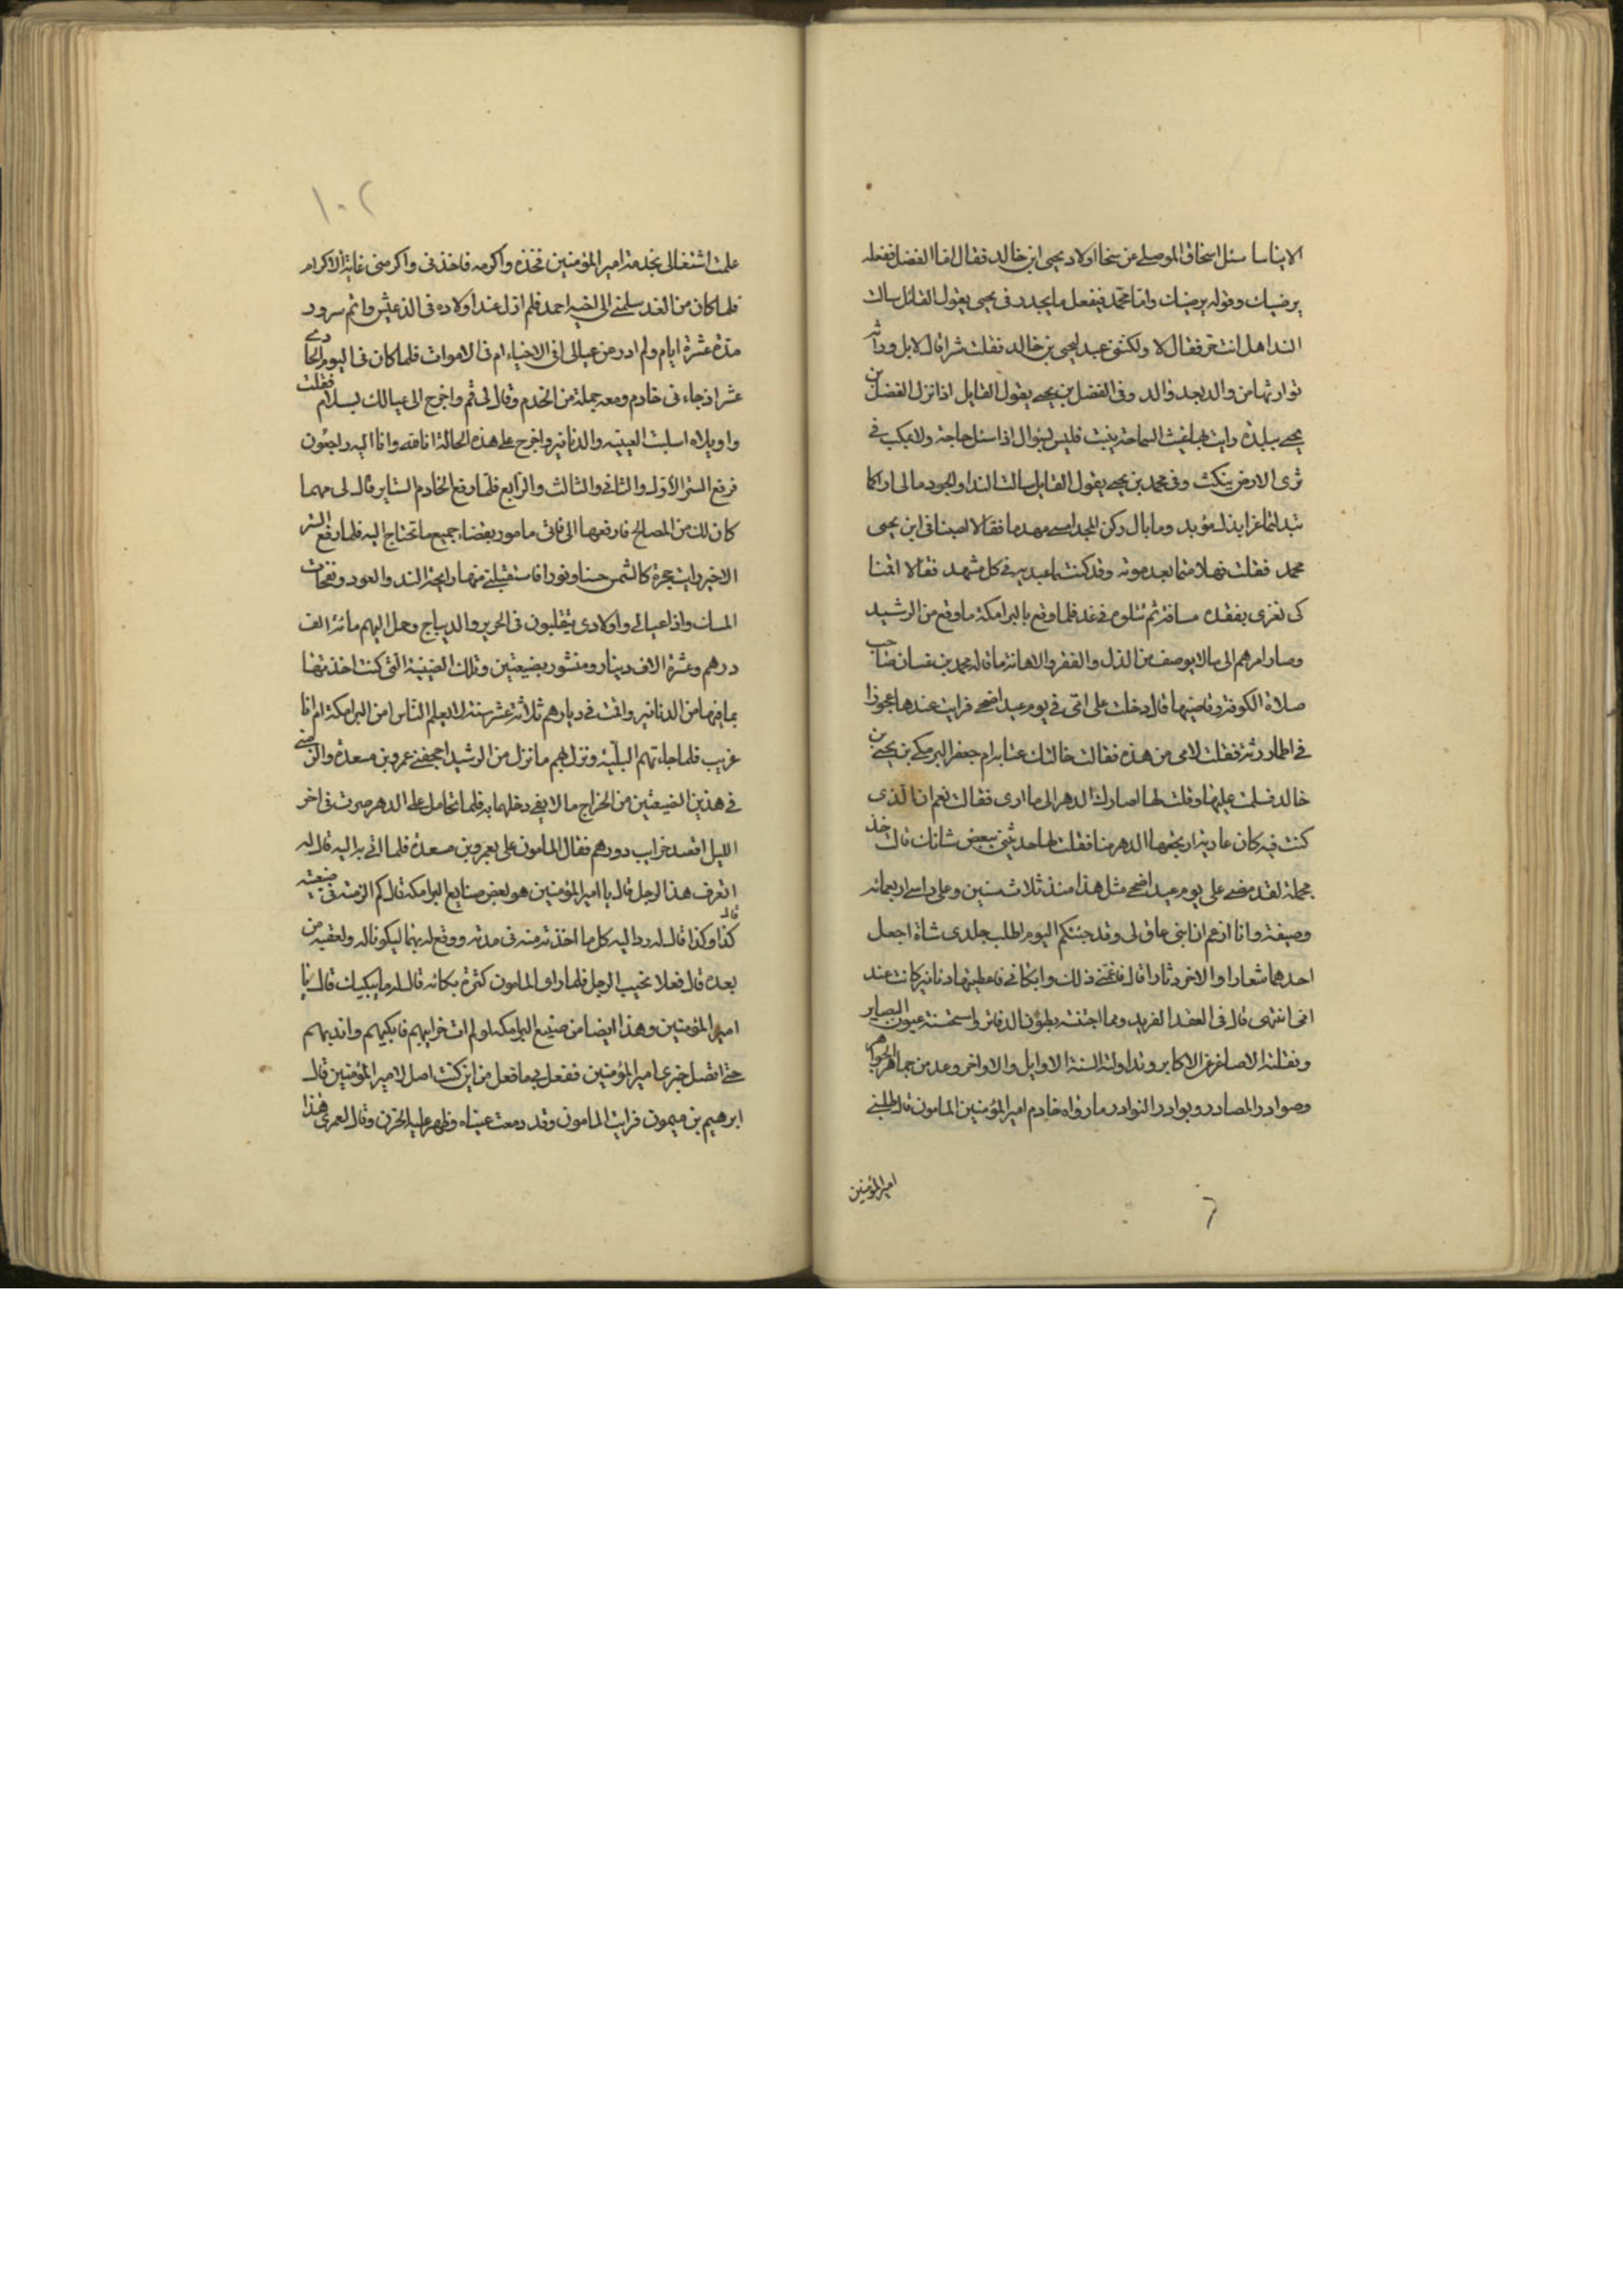 الايناسا سئل اسحاق الموصلي عن سخا اولاد يحيى ابن خالد فقال اما الفضل ففعله
يرضيك وقوله يرضيك واما محمد فيفعل ما يجد وفى يحيى يقول القائل سالت
الندا هل انت حر فقال لا ولكننى عبد ليحيى بن خالد فقلت شرا قال لا بل وراثة
توارثها من والد بعد والد وفى الفضل بن يحيى يقول القايل اذا نزل الفضل بن
يحيى ببلدة رايت بها غيث السماحة ينبت فليس بسوال اذا سئل حاجة ولا بمكب في
ثرى الارض ينكث وفى محمد بن يحيى يقول القايل سالت الندا والجود مالى اراكما
تبدلتما عزا بذل مؤبد وما بال ركن المجد امسى مهدما فقالا اصبنا فى ابن يحيى
محمد فقلت فهلا متما بعد موته وقد كنتما عبديه في كل مشهد فقالا اقمنا
كى نعزى بفقده مسافة يوم ثم نتلوه في غد فلما وقع بالبرامكة ما وقع من الرشيد
وصار امرهم الى مالا يوصف من الذل والفقر والاهانة ما قاله محمد بن غسان صاحب
صلاة الكوفة وقاضيها قال دخلت على امى في يوم عيد اضحى فرايت عندها عجوزا
في اطمار رثة فقلت لامى من هذه فقالت خالتك عتابة ام جعفر البرمكي بن يحيى بن
خالد فسلمت عليها وقلت لها اصارك الدهر الى ما ارى فقالت نعم ان الذى
كنت فيه كان عارية ارتجعها الدهر منا فقلت لها حدثينى ببعض شانك قالت خذ
بجملة لقد مضى على يوم عيد اضحى مثل هذا منذ ثلاث سنين وعلى راسى اربعمائة
وصيفة وانا ازعم ان ابنى عاق لى وقد جئتكم اليوم اطلب جلدى شاة اجعل
احدهما شعارا والاخر دثارا قال فغمنى ذلك وابكانى فاعطيتها دنانير كانت عند
امى انتهى قال فى العقد الفريد ومما اجتنته بطون الدفاتر واستحسنته عيون البصاير
ونقلته الاصاغر عن الاكابر وتداولته السنة الاوايل والاواخر وعد من جماهر الجواهر
وصوادر المصادر وبوادر النوادر ما رواه خادم امير المؤمنين المامون قال طلبنى
امير المؤمنين
٦
١٠٢
علمت اشتغالى بخدمة امير المؤمنين فخذه واكرمه فاخذنى واكرمنى غاية الاكرام
فلما كان من الغد سلمنى الى اخيه احمد فلم ازل عند اولاده فى الذ عيش واتم سرور
مدة عشرة ايام ولم ادر من عيالى افى الاحياء ام فى الاموات فلما كان فى اليوم الحادى
عشر اذ جاءنى خادم ومعه جملة من الخدم وقال لى قم واخرج الى عيالك بسلام فقلت
واويلاه اسلبت الصينيه والدنانير واخرج على هذه الحالة انا لله وانا اليه راجعون
فرفع الستر الاول والثانى والثالث والرابع فلما رفع الخادم الستاير قال لى مهما
كان لك من المصالح فارفعها الى فانى مامور بقضاء جميع ما تحتاج اليه فلما رفع الستر
الاخير رايت حجرة كالشمس حسنا ونورا فاستقبلنى منها رايحة الند والعود ونفحات
المسك واذا عيالى واولادى يتقلبون فى الحرير والديباج وحمل اليهم مائة الف
درهم وعشرة الاف دينار ومنشور بضيعتين وتلك الصينية التى كنت اخذتها
بما فيها من الدنانير واقمت فى ديارهم ثلاثة عشر سنة لا يعلم الناس امن البرامكة ام انا
غريب فلما جاءتهم البلية ونزل بهم ما نزل من الرشيد اجحفنى عمرو بن مسعدة والزمنى
في هذين الضيعتين من الخراج مالا يفى دخلهما به فلما تحامل على الدهر صرت فى اخر
الليل اقصد خراب دورهم فقال المامون على بعمرو بن مسعدة فلما اتى به اليه قال له
اتعرف هذا الرجل قال يا امير المؤمنين هو بعض صنايع البرامكة قال كم الزمته فى ضيعته
قال
كذا وكذا قال له رد اليه كل ما اخذته منه فى مدته ووقع له بهما ليكونا له ولعقبه من
بعده قال فعلا نحيب الرجل فلما راى المامون كثرة بكائه قال له ما يبكيك قال يا
امير المؤمنين وهذا ايضا من صنيع البرامكة لو لم ات خرابهم فابكيهم واندبهم
حتى اتصل خبرى بامير المؤمنين ففعل بى ما فعل من اين كنت اصل لامير المؤمنين قال
ابرهيم بن ميمون فرايت المامون وقد دمعت عيناه وظهر عليه الحزن وقال لعمرى هذا